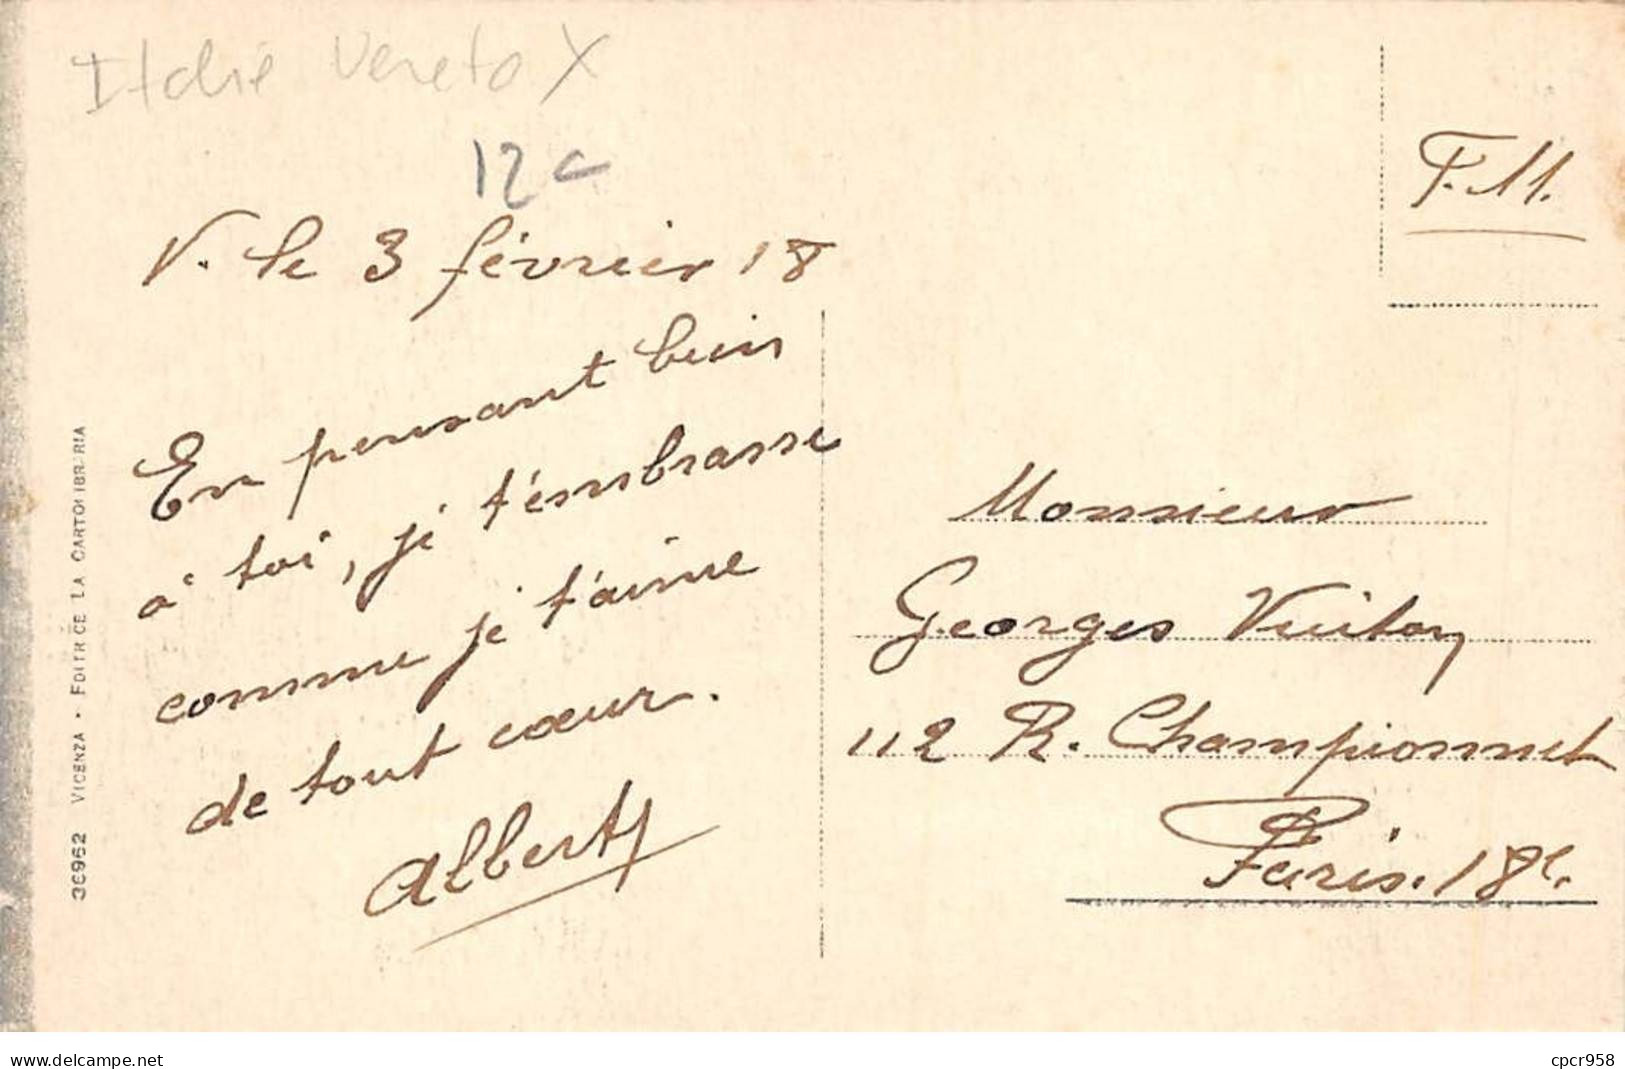 Italie Veneto X
12c
F.M.
V. le 3 février 18
En pensant bien
à toi, je t'embrasse
comme je t'aime
de tout cœur.
Albert
Monsieur
Georges
112 R. Championnet
Paris. 18e.
36962 VICENZA - EDITRICE LA CARTOLIBRARIA
www.delcampe.net
cpcr958